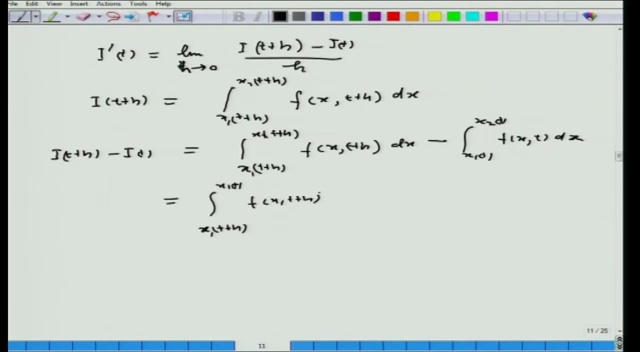 File Edit View Insert Actions Tools Help
I'(t) = lim h→0 (I(t+h) − I(t))/h
I(t+h) = ∫_{x₁(t+h)}^{x₂(t+h)} f(x, t+h) dx
I(t+h) − I(t) = ∫_{x₁(t+h)}^{x₂(t+h)} f(x, t+h) dx − ∫_{x₁(t)}^{x₂(t)} f(x, t) dx
= ∫_{x₁(t+h)}^{x₁(t)} f(x, t+h)
11 / 25
11